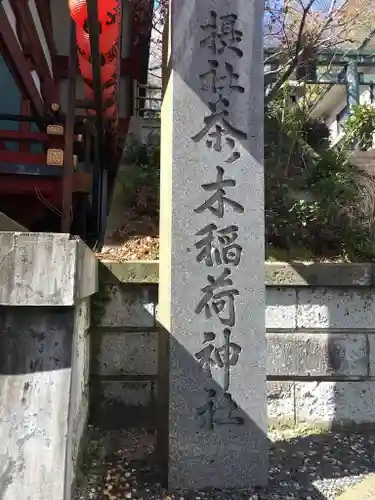 摂社茶ノ木稲荷神社